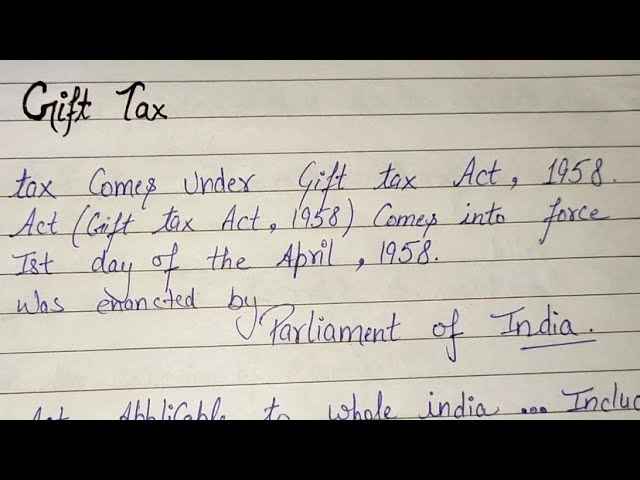 Gift Tax
tax Comes Under Gift tax Act, 1958.
Act (Gift tax Act, 1958) Comes into force
Ist day of the April, 1958.
Was enancted by
Parliament of India.
Act Abblicable to whole india ... Includ